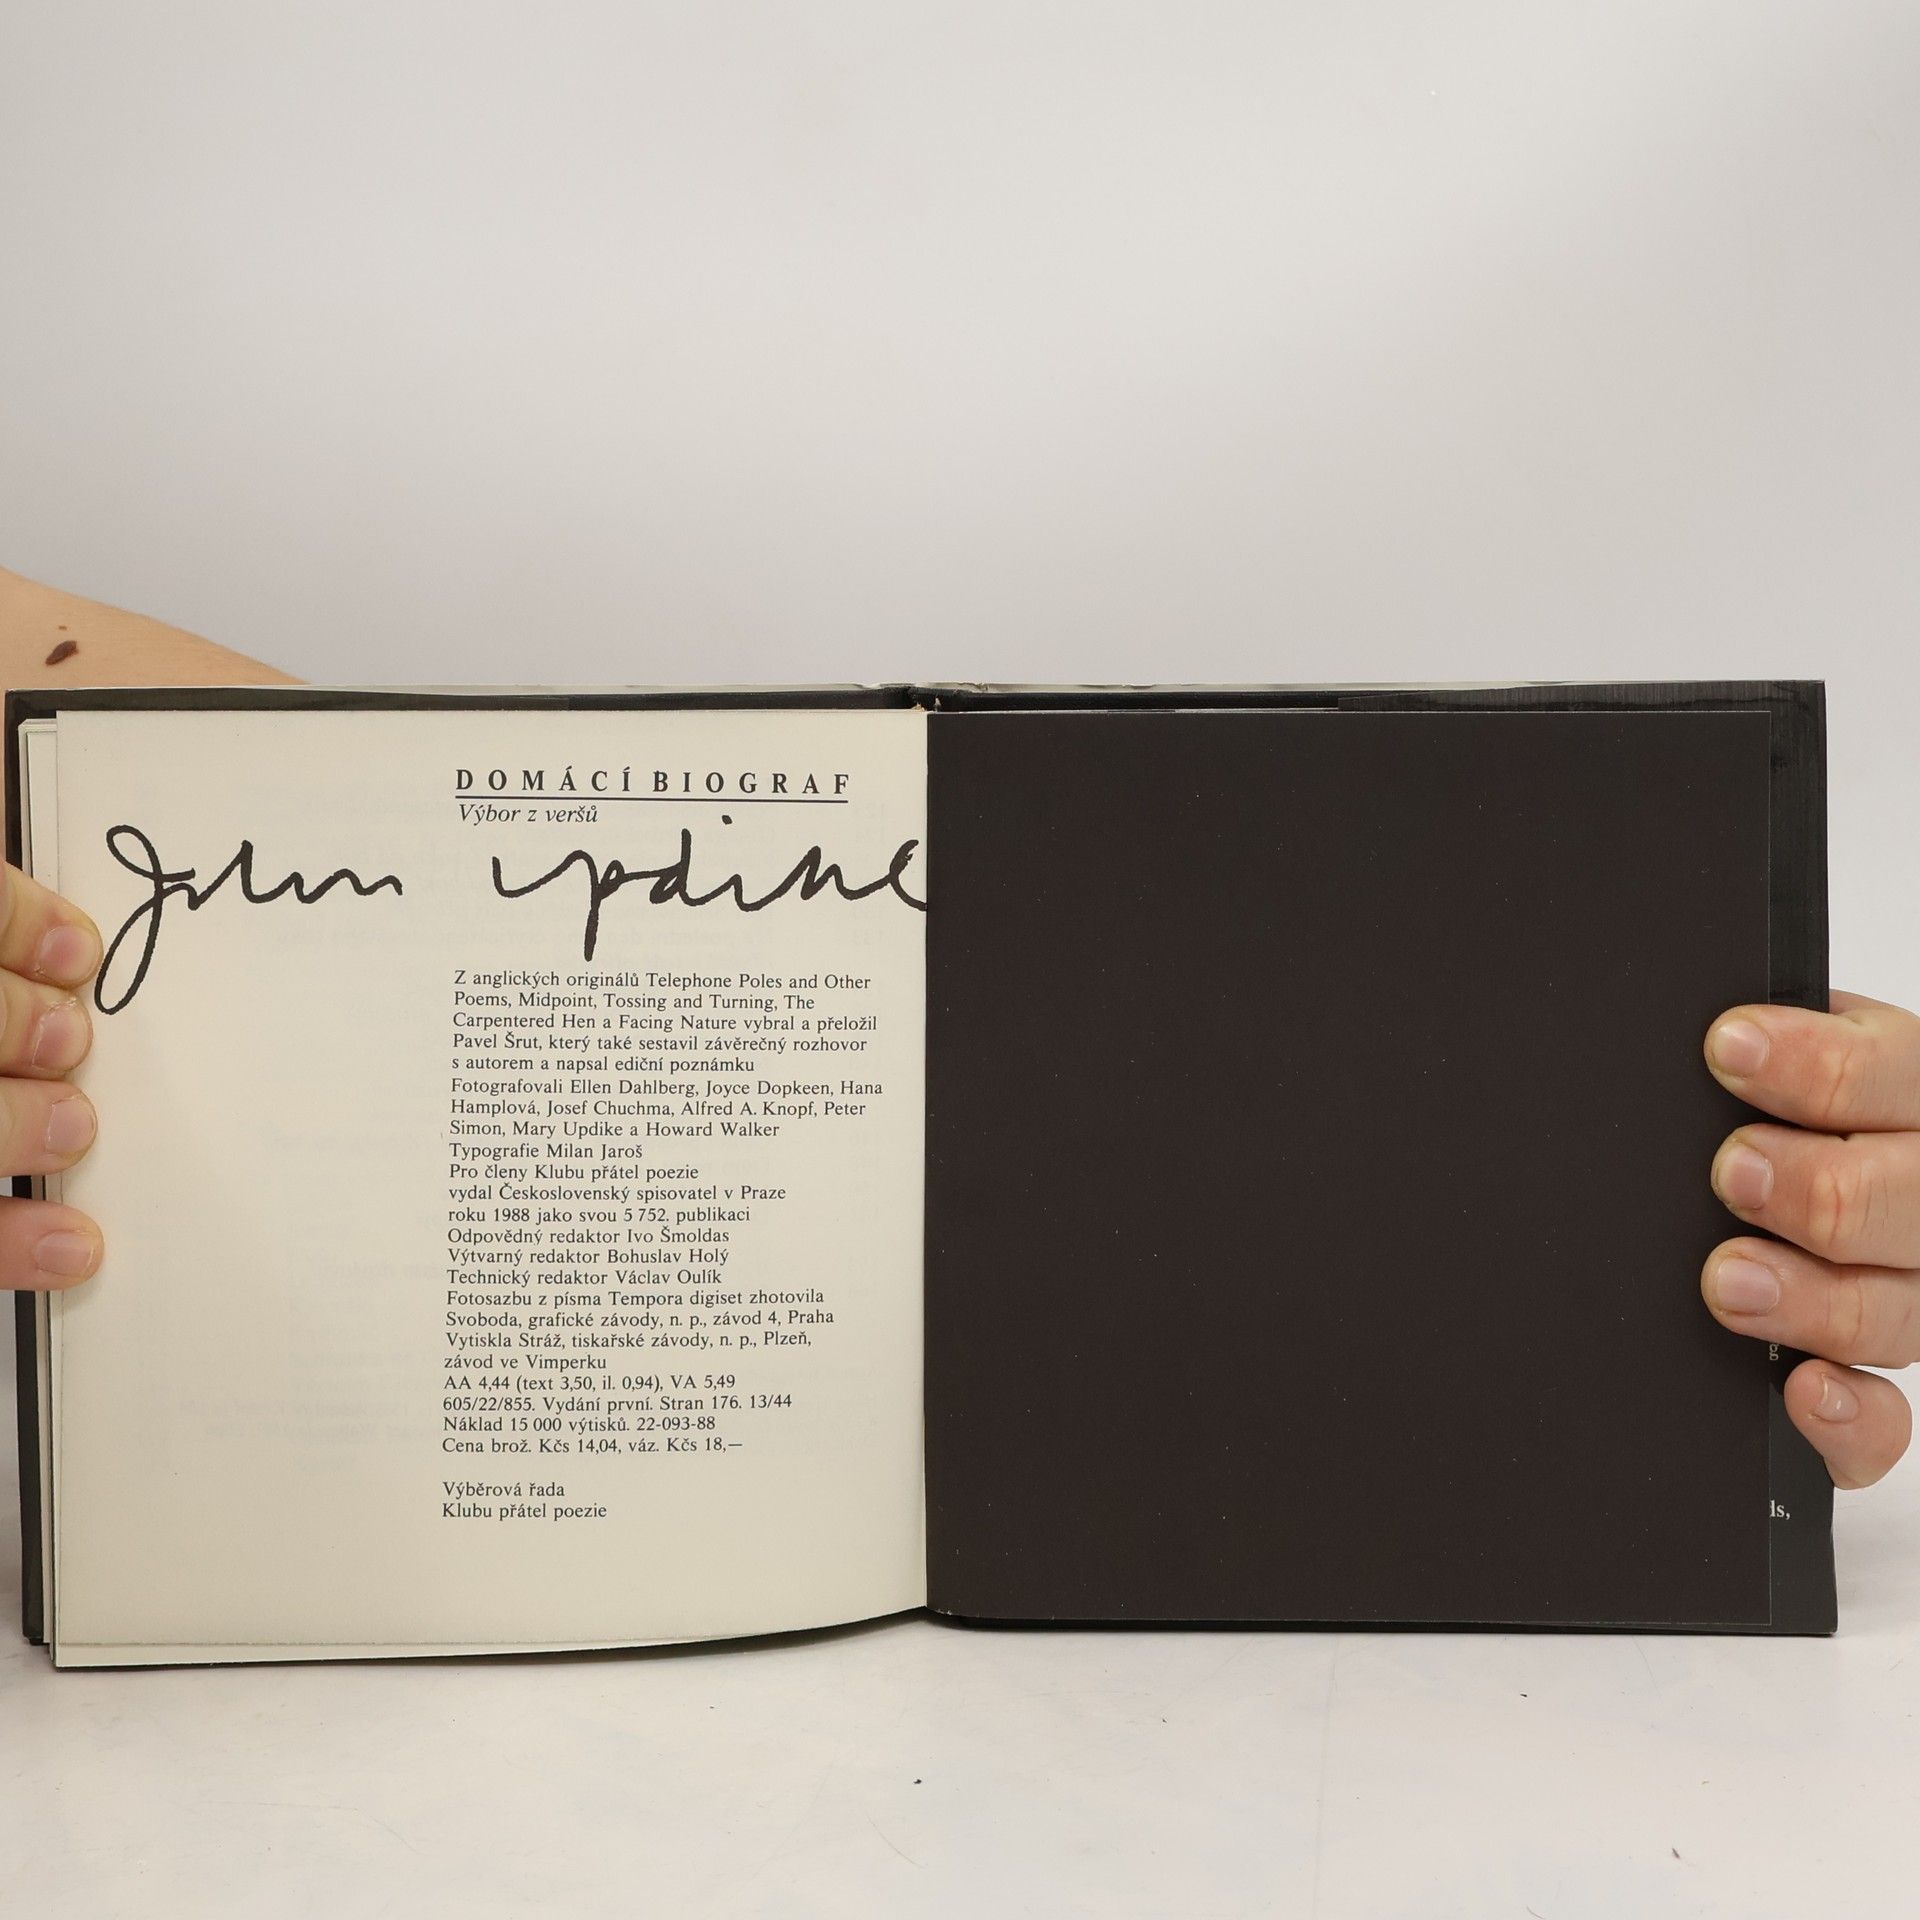 DOMÁCÍ BIOGRAF
Výbor z veršů
John Updike
Z anglických originálů Telephone Poles and Other
Poems, Midpoint, Tossing and Turning, The
Carpentered Hen a Facing Nature vybral a přeložil
Pavel Šrut, který také sestavil závěrečný rozhovor
s autorem a napsal ediční poznámku
Fotografovali Ellen Dahlberg, Joyce Dopkeen, Hana
Hamplová, Josef Chuchma, Alfred A. Knopf, Peter
Simon, Mary Updike a Howard Walker
Typografie Milan Jaroš
Pro členy Klubu přátel poezie
vydal Československý spisovatel v Praze
roku 1988 jako svou 5 752. publikaci
Odpovědný redaktor Ivo Šmoldas
Výtvarný redaktor Bohuslav Holý
Technický redaktor Václav Oulík
Fotosazbu z písma Tempora digiset zhotovila
Svoboda, grafické závody, n. p., závod 4, Praha
Vytiskla Stráž, tiskařské závody, n. p., Plzeň,
závod ve Vimperku
AA 4,44 (text 3,50, il. 0,94), VA 5,49
605/22/855. Vydání první. Stran 176. 13/44
Náklad 15 000 výtisků. 22-093-88
Cena brož. Kčs 14,04, váz. Kčs 18,—
Výběrová řada
Klubu přátel poezie